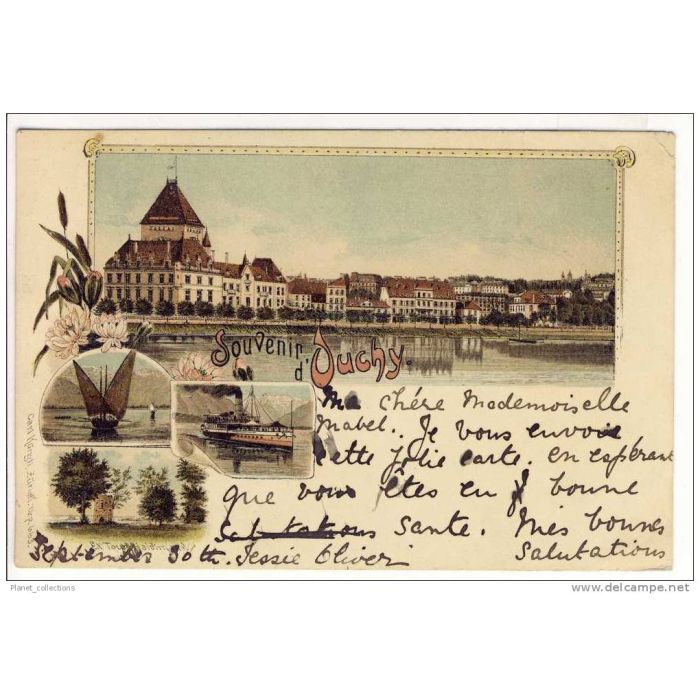 Souvenir
d'Ouchy.
Ma chère Mademoiselle
Mabel. Je vous envoie
cette jolie carte. en espérant
que vous êtes en bonne
Salutations sante. Mes bonnes
September 30th. Jessie Oliver Salutations
La Tour Haldimand
Planet_collections
delcampe.net